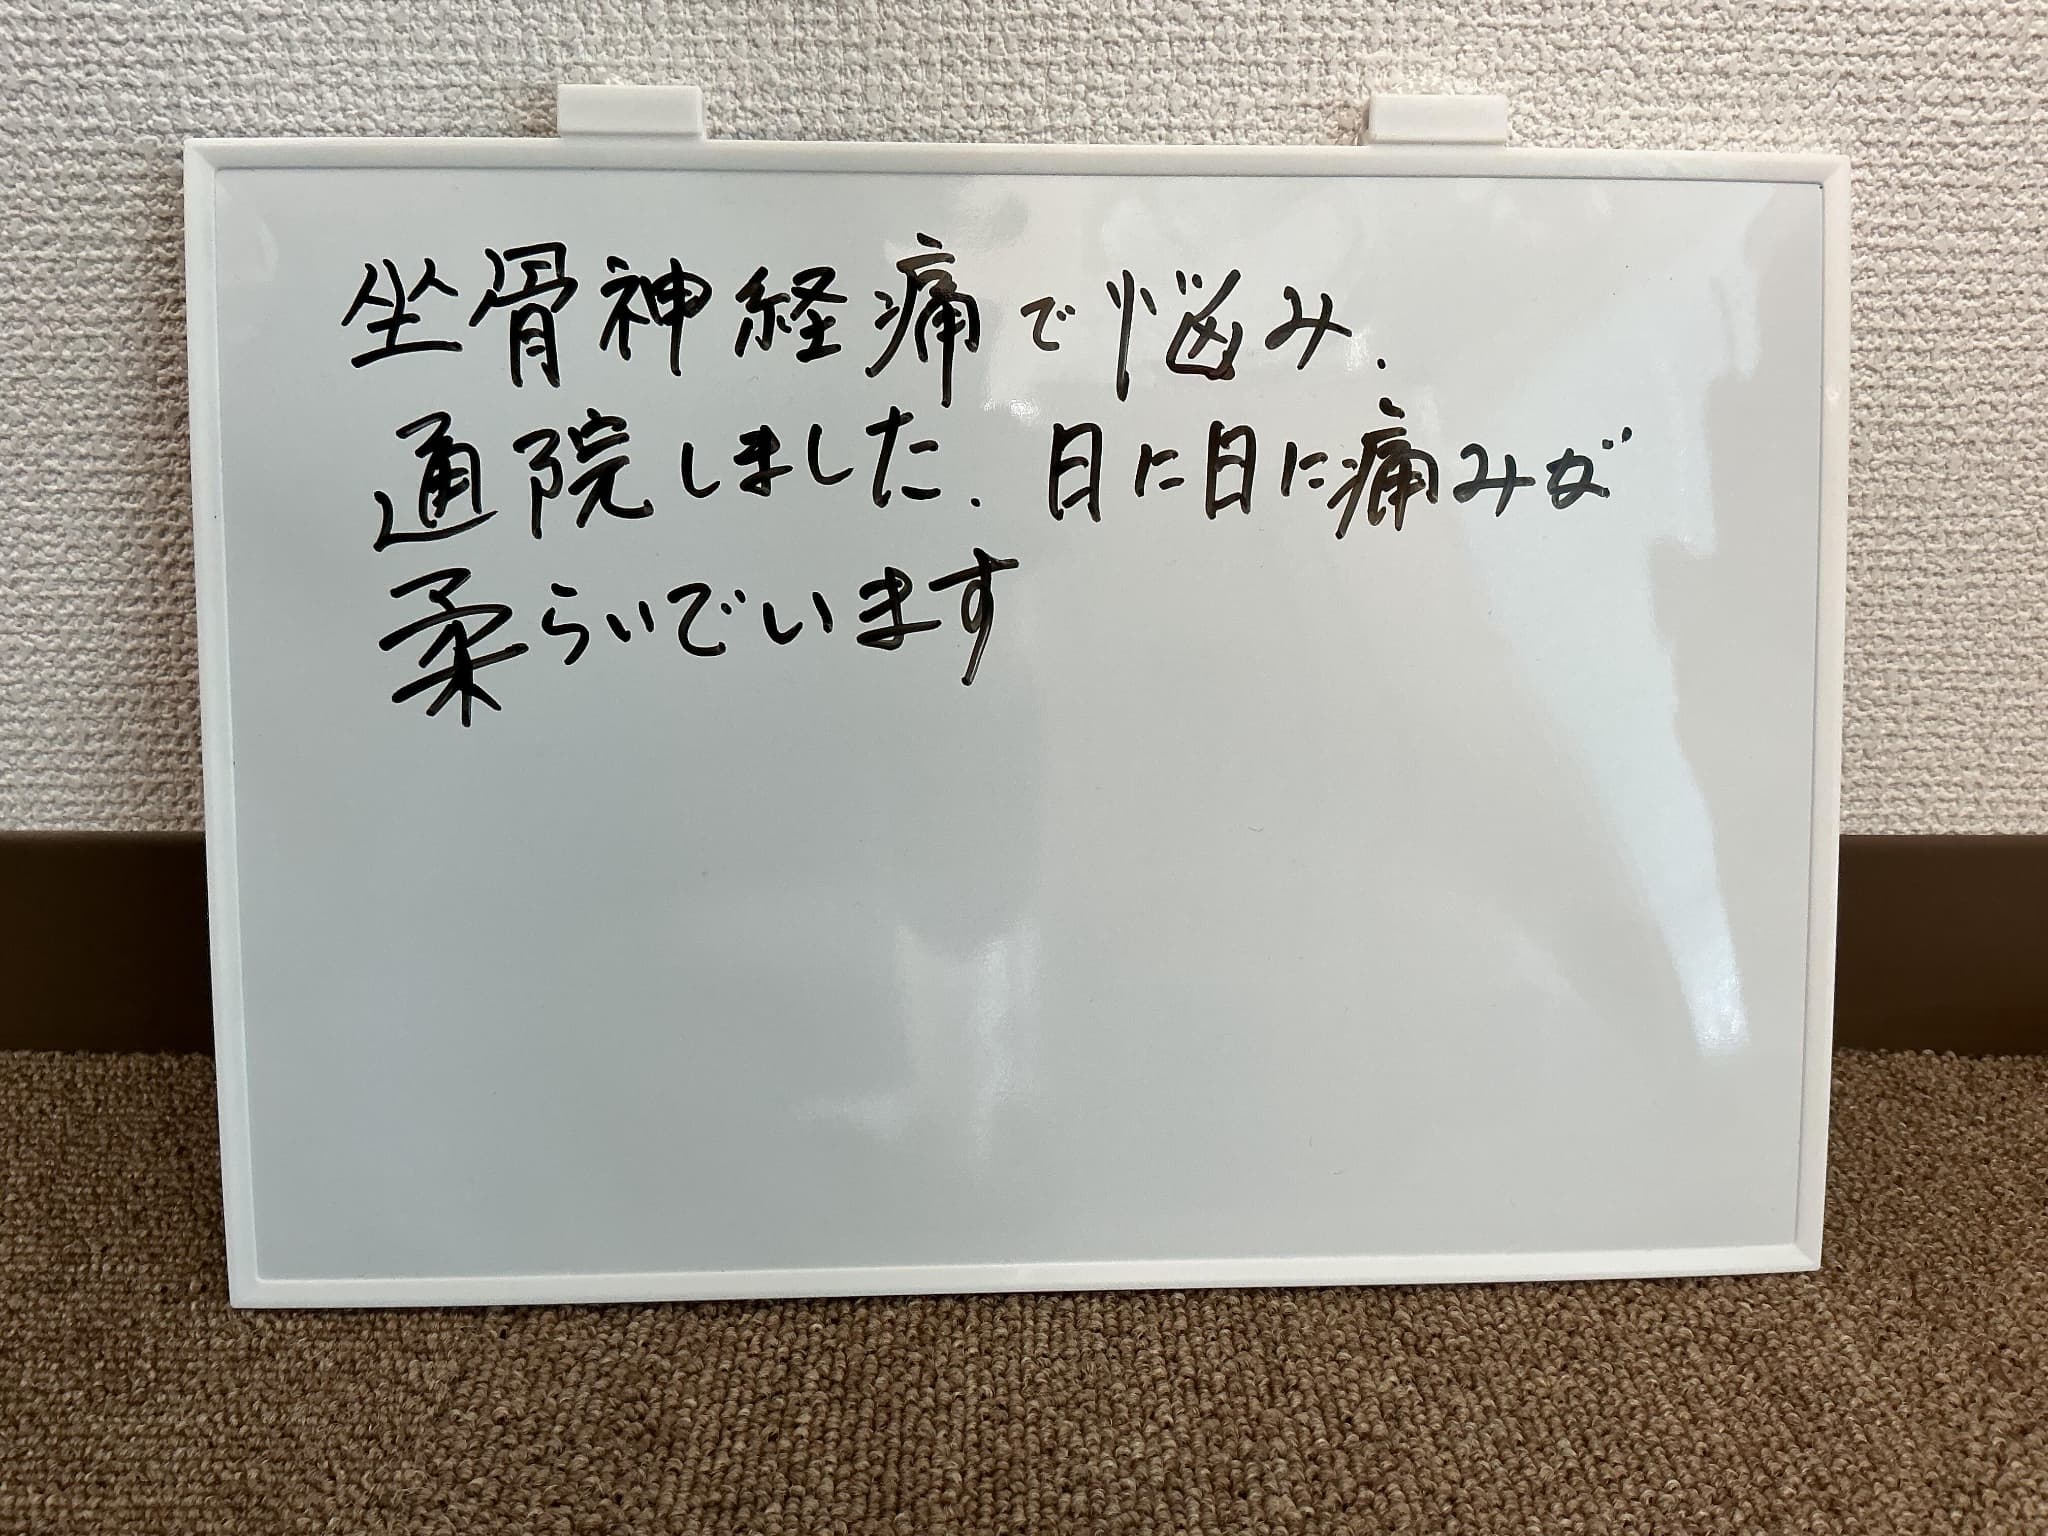 坐骨神経痛で悩み.
通院しました.日に日に痛みが
柔らいでいます